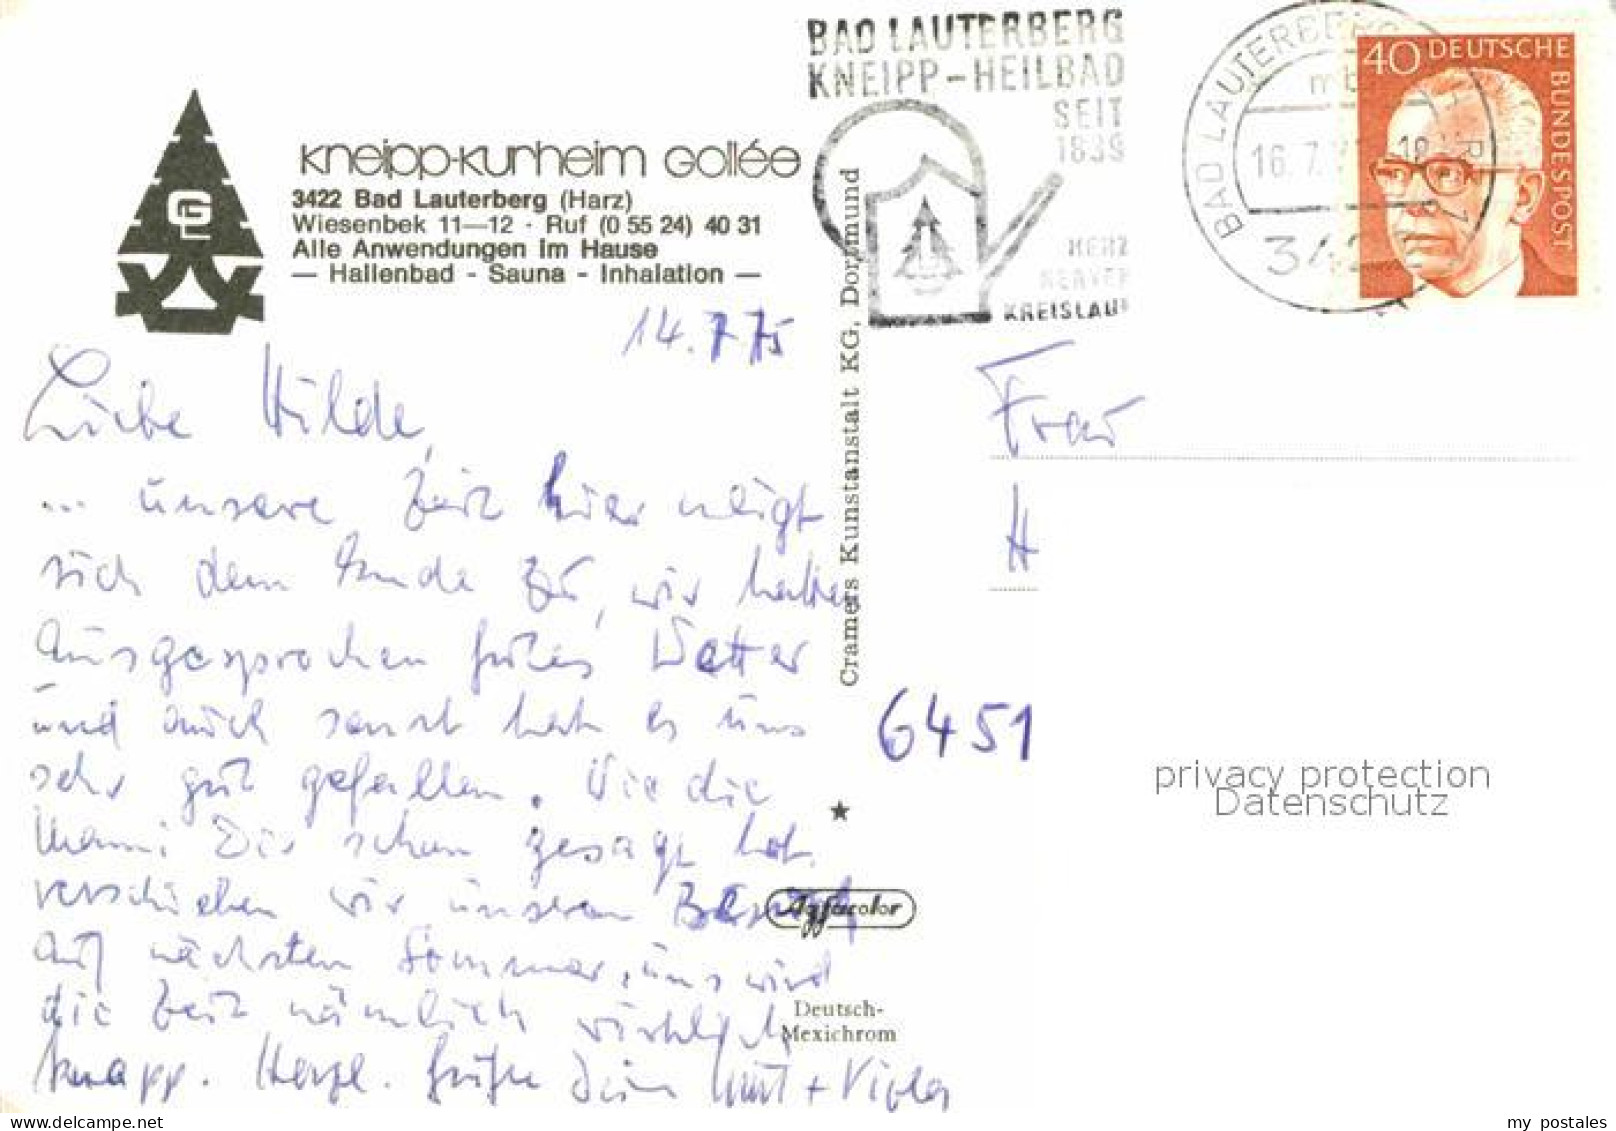 BAD LAUTERBERG
KNEIPP-HEILBAD
SEIT
1839
HERZ
NERVEN
KREISLAUF
BAD LAUTERBERG
16.7.
40 DEUTSCHE
BUNDESPOST
Kneipp-Kurheim Gollée
3422 Bad Lauterberg (Harz)
Wiesenbek 11—12 · Ruf (0 55 24) 40 31
Alle Anwendungen im Hause
— Hallenbad - Sauna - Inhalation —
14.7.75
Liebe Hilde,
... unsere Zeit hier neigt
sich dem Ende zu, wir hatten
ausgesprochen gutes Wetter
und auch sonst hat es uns
sehr gut gefallen. Wie die
Mami Dir schon gesagt hat,
verschieben wir unseren Besuch
auf nächsten Sommer, uns wird
die Zeit nämlich wirklich
knapp. Herzl. Grüße Dein + Viola
Cramers Kunstanstalt KG, Dortmund
Agfacolor
Deutsch-
Mexichrom
Frau
H
6451
privacy protection
Datenschutz
my postales